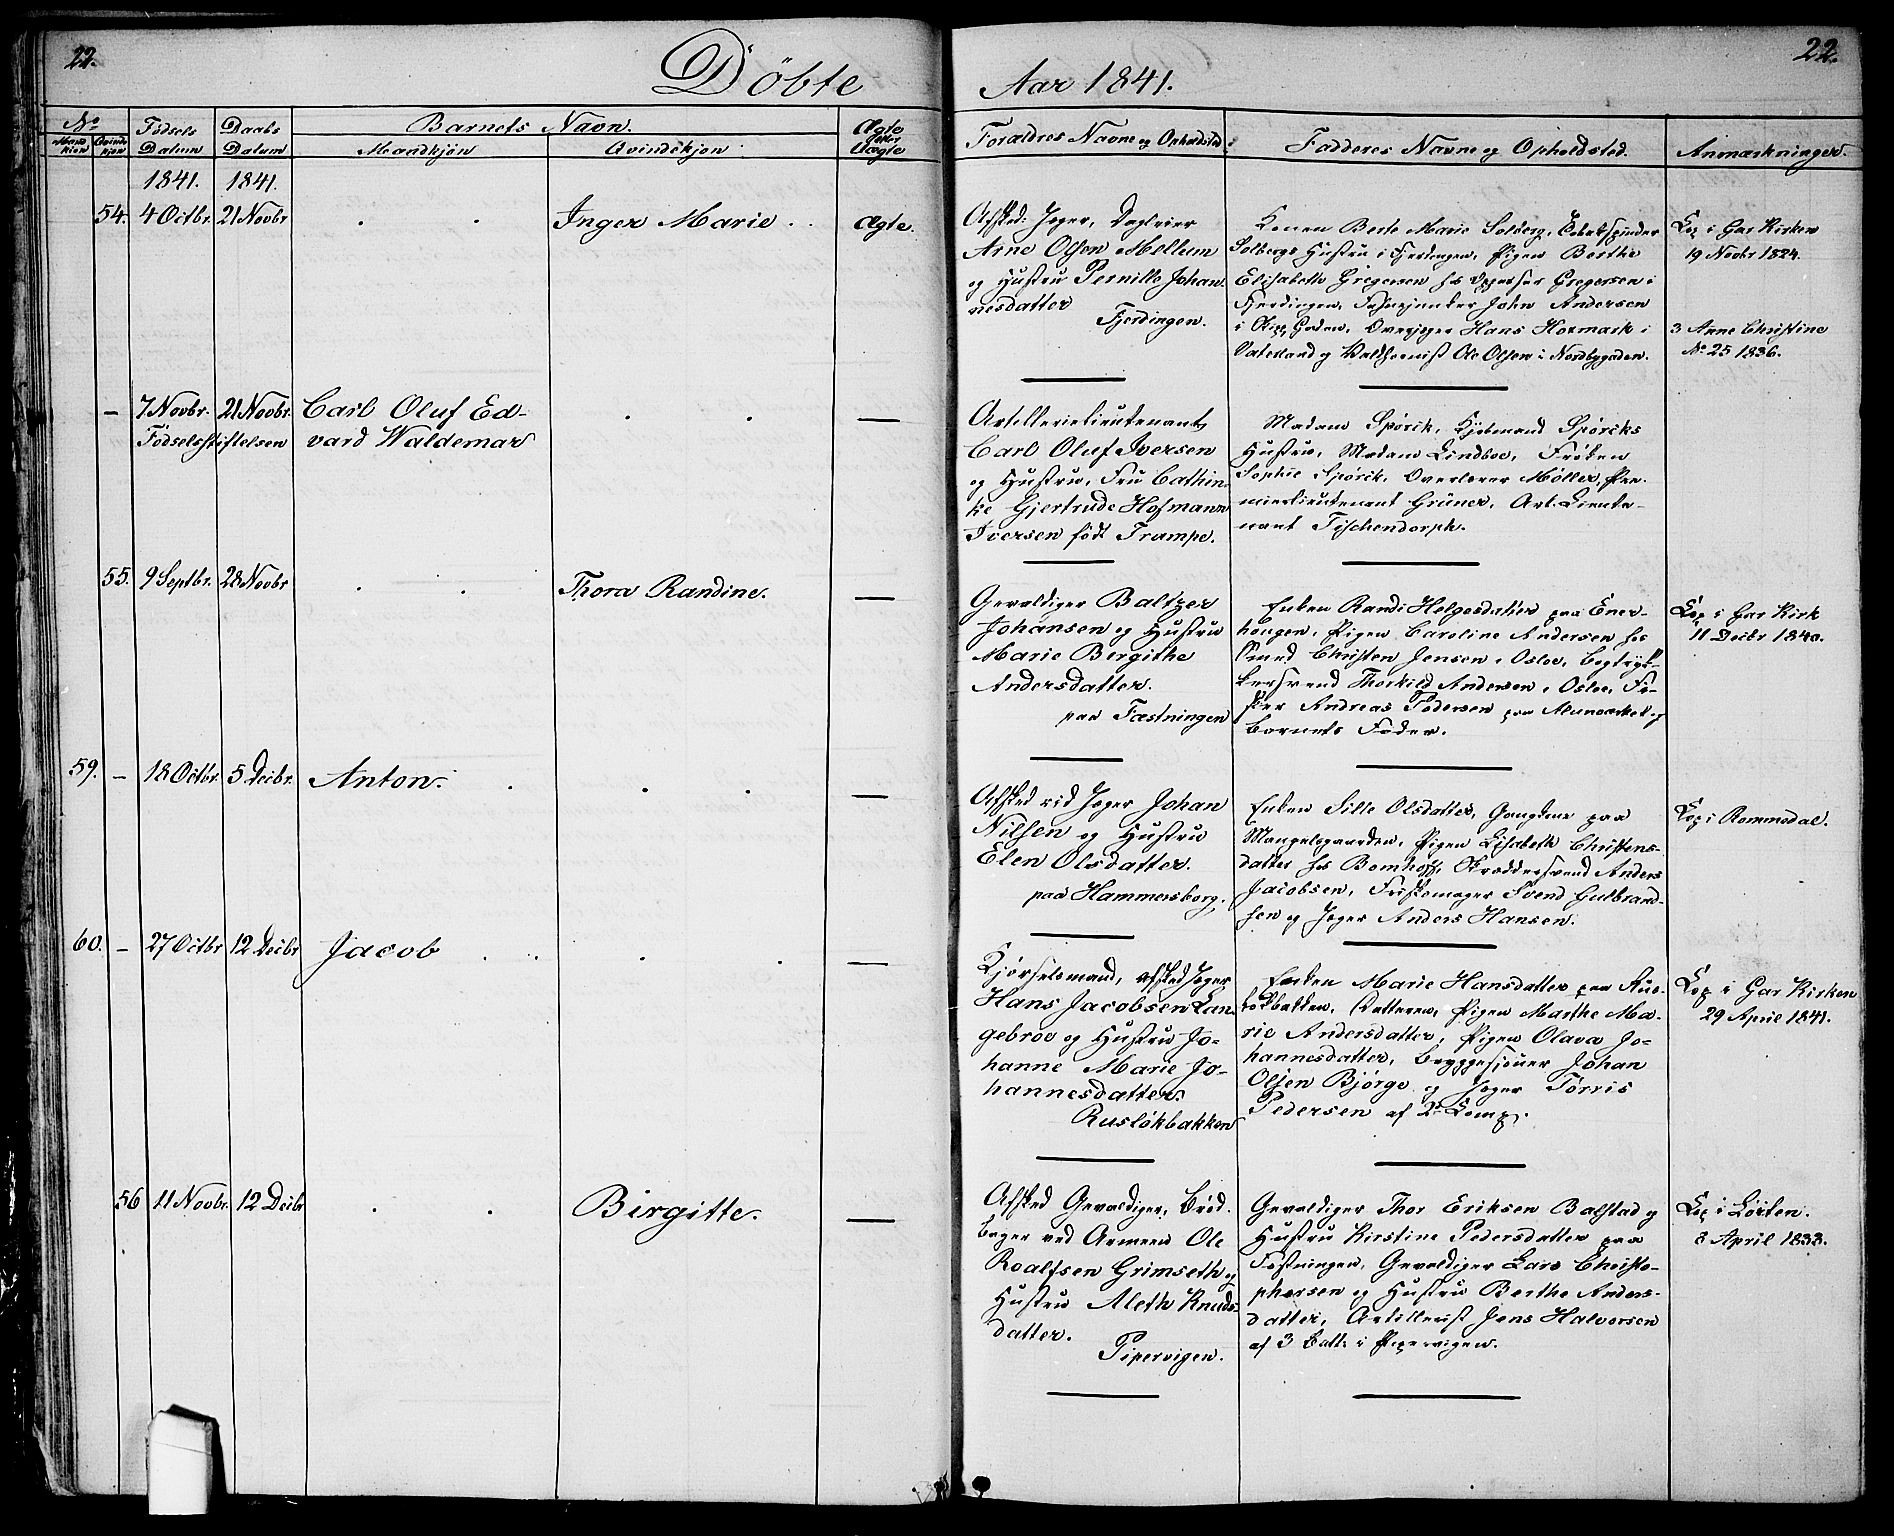 22.
22.
Döbte
Aar 1841.
No
Mandkjön
Qvindekjön
Födsels Datum
Daabs Datum
Barnets Navn.
Mandkjön
Qvindekjön
Ægte eller Uægte
Forældres Navne og Opholdsted
Fadderes Navne og Opholdsted.
Anmærkninger.
1841. 1841.
54. 4 Octbr. 21 Novbr
Inger Marie
Ægte.
Afsked: Jæger, Dagleier
Arne Olsen Mellum
og Hustru Pernille Johan
nesdatter
Fjerdingen.
Konen Berte Marie Solberg, Tobakspinder
Solbergs Hustru i Fjerdingen, Pigen Berthe
Elisabeth Gregersen hos Opperser Gregersen i
Fjerdingen, John Andersen
Overjæger Hans Hormark i
Vaterland og Valdhornist Ole Olsen i Nordbygaden.
Cop i Gar Kirken
19 Novbr 1824.
3 Anne Christine
No 25 1836.
— 7 Novbr. 21 Novbr.
Födselsstiftelsen
Carl Oluf Ed-
vard Waldemar
—
Artillerielieutenant
Carl Oluf Iversen
og Hustru, Fru Cathin
ke Gjertrude Hofmann
Iversen födt Trampe.
Madam Spörck, Kjöbmand Spörcks
Hustru, Madam Lindboe, Fröken
Sophie Spörck, Overlærer Möller, Pre-
mierlieutenant Grüner, Art. Lieute-
nant Tischendorph.
55. 9 Septbr. 28 Novbr
Thora Randine.
—
Gevaldiger Baltzer
Johansen og Hustru
Marie Bergithe
Andersdatter.
paa Fæstningen
Enken Randi Helgesdatter paa Ener-
hougen, Pigen Caroline Andersen hos
Smed Christen Jensen i Osloe, Bogtryk-
kersvend Thorkild Andersen i Osloe, Fi-
sker Andreas Pedersen paa Alunverket og
Barnets Fader.
Cop i Gar Kirk
11 Decbr 1840.
59. — 18 Octbr. 5 Decbr.
Anton.
—
Afsked rid Jæger Johan
Nilsen og Hustru
Elen Olsdatter.
paa Hammersborg.
Enken Sille Olsdatter, Gangkone paa
Mangelsgaarden, Pigen Lisabeth Christens-
datter hos Bomhoff, Skræddersvend Anders
Jacobsen, Svend Gulbrand
sen og Jæger Anders Hansen.
Cop i Rommedal.
60. — 27 Octbr 12 Decbr
Jacob
—
Kjörselsmand, afsked Jæger
Hans Jacobsen Lan
gebroe og Hustru Jo-
hanne Marie Jo-
hannesdatter.
Ruslökbakken
Enken Marie Hansdatter paa Rus-
lökbakken, Datteren, Pigen Marthe Ma-
rie Andersdatter, Pigen Olava Jo-
hannesdatter, Bryggesjouer Johan
Olsen Björge og Jæger Törris
Pedersen af 2 Comp.
Cop i Gar Kirken
29 April 1841.
56 11 Novbr. 12 Decbr
Birgitte.
—
Afsked Gevaldiger, Bröd
bager ved Armeen Ole
Roalfsen Grimseth og
Hustru Aleth Knuds-
datter.
Pipervigen.
Gevaldiger Thor Eriksen Balstad og
Hustru Kirstine Pedersdatter paa
Fæstningen, Gevaldiger Lars Christo-
phersen og Hustru Berthe Anders-
datter, Artillerist Jens Halvorsen
af 3 Batt. i Pipervigen.
Cop i Löiten.
8 April 1833.